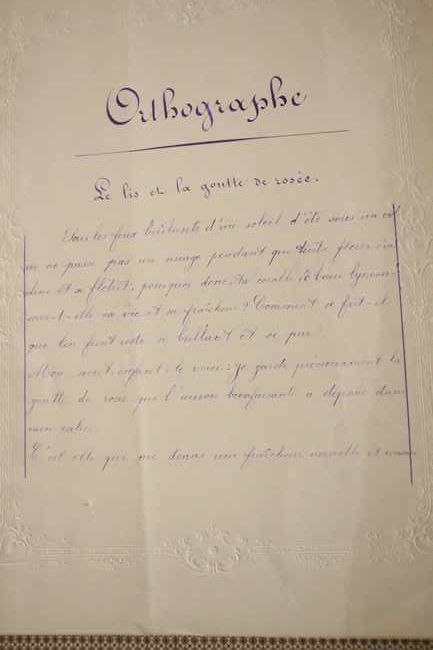 Orthographe
Le lis et la goutte de rosée.
Sous les feux brûlants d'un soleil d'été, sous un ciel
où ne passe pas un nuage pendant que toute fleur s'in
cline et se flétrit, pourquoi donc, ta corolle, ô beau lys
-elle sa vie et sa fraîcheur? Comment se fait-il
que ton front reste si brillant et si pur?
Mon secret, enfant, le voici: je garde précieusement la
goutte de rosée que l'aurore bienfaisante a déposée dans
mon calice.
C'est elle qui me donne une fraîcheur nouvelle et